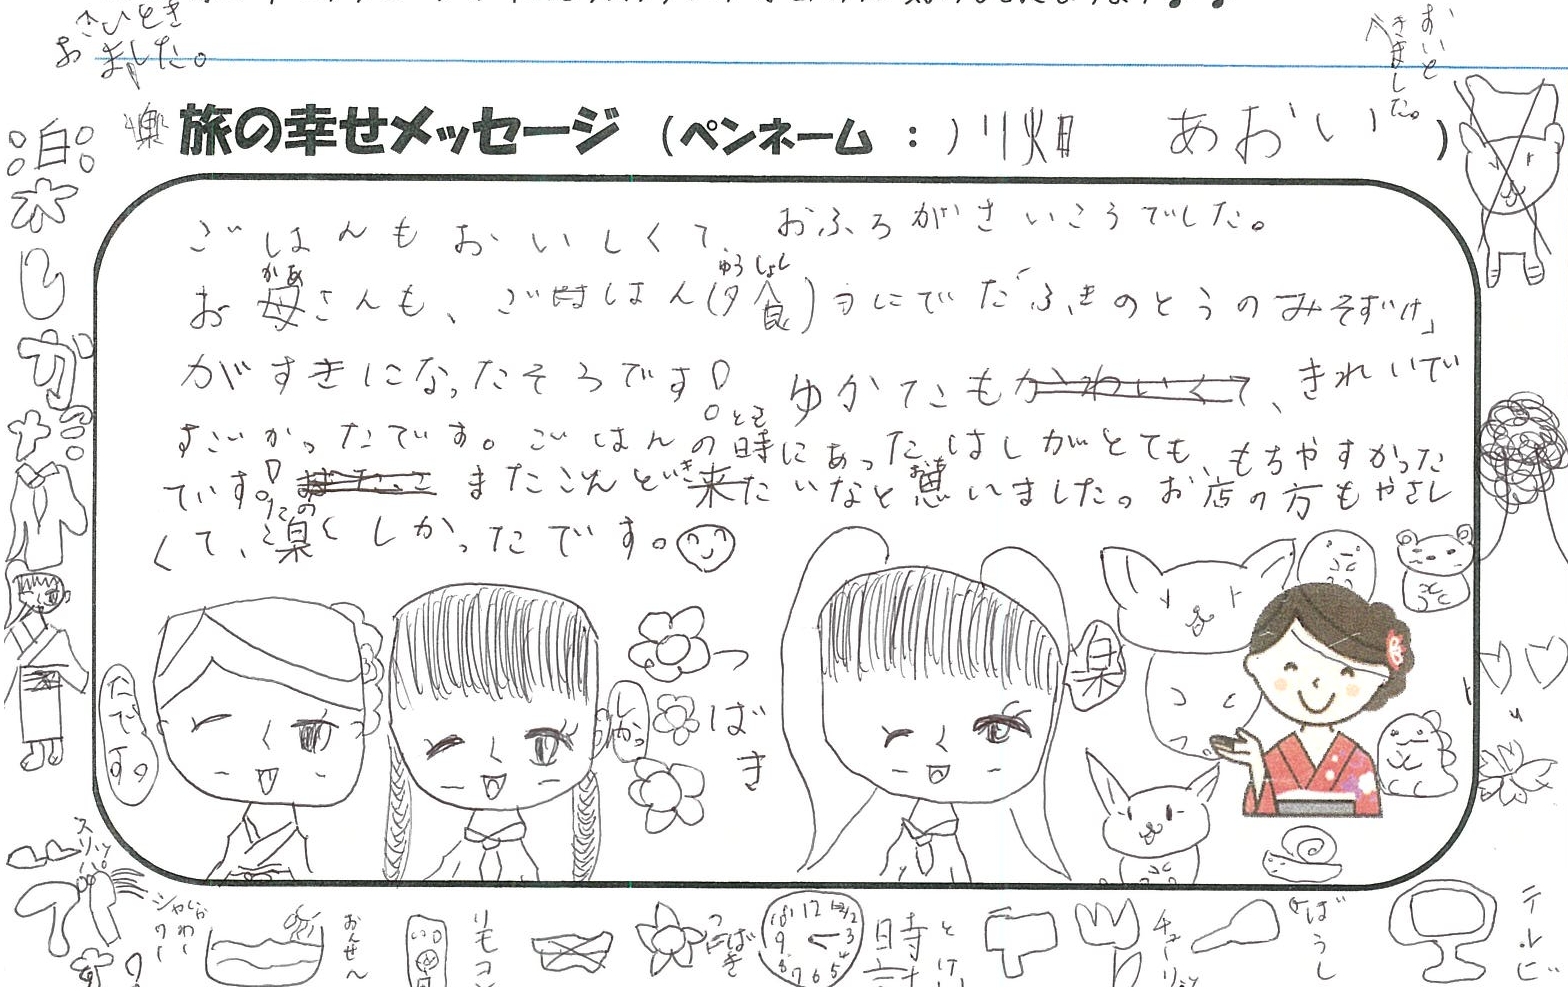 おきました。
おいときました。
旅の幸せメッセージ (ペンネーム : ) 川畑 あおい )
ごはんもおいしくて、おふろがさいこうでした。
お母さんも、ごはん(夕食)にでた「ふきのとうのみそずけ」
がすきになったそうです! ゆかたも、きれいで
すごかったです。ごはんの時にあったはしがとても、もちやすかった
です! またこんど来たいなと思いました。お店の方もやさし
くて、楽しかったです。
楽
しかっ
たです。
つばき
楽しかった
スリッパ
シャワー
おんせん
リモコン
つばき
時計
とけい
チューリップ
ぼうし
テレビ